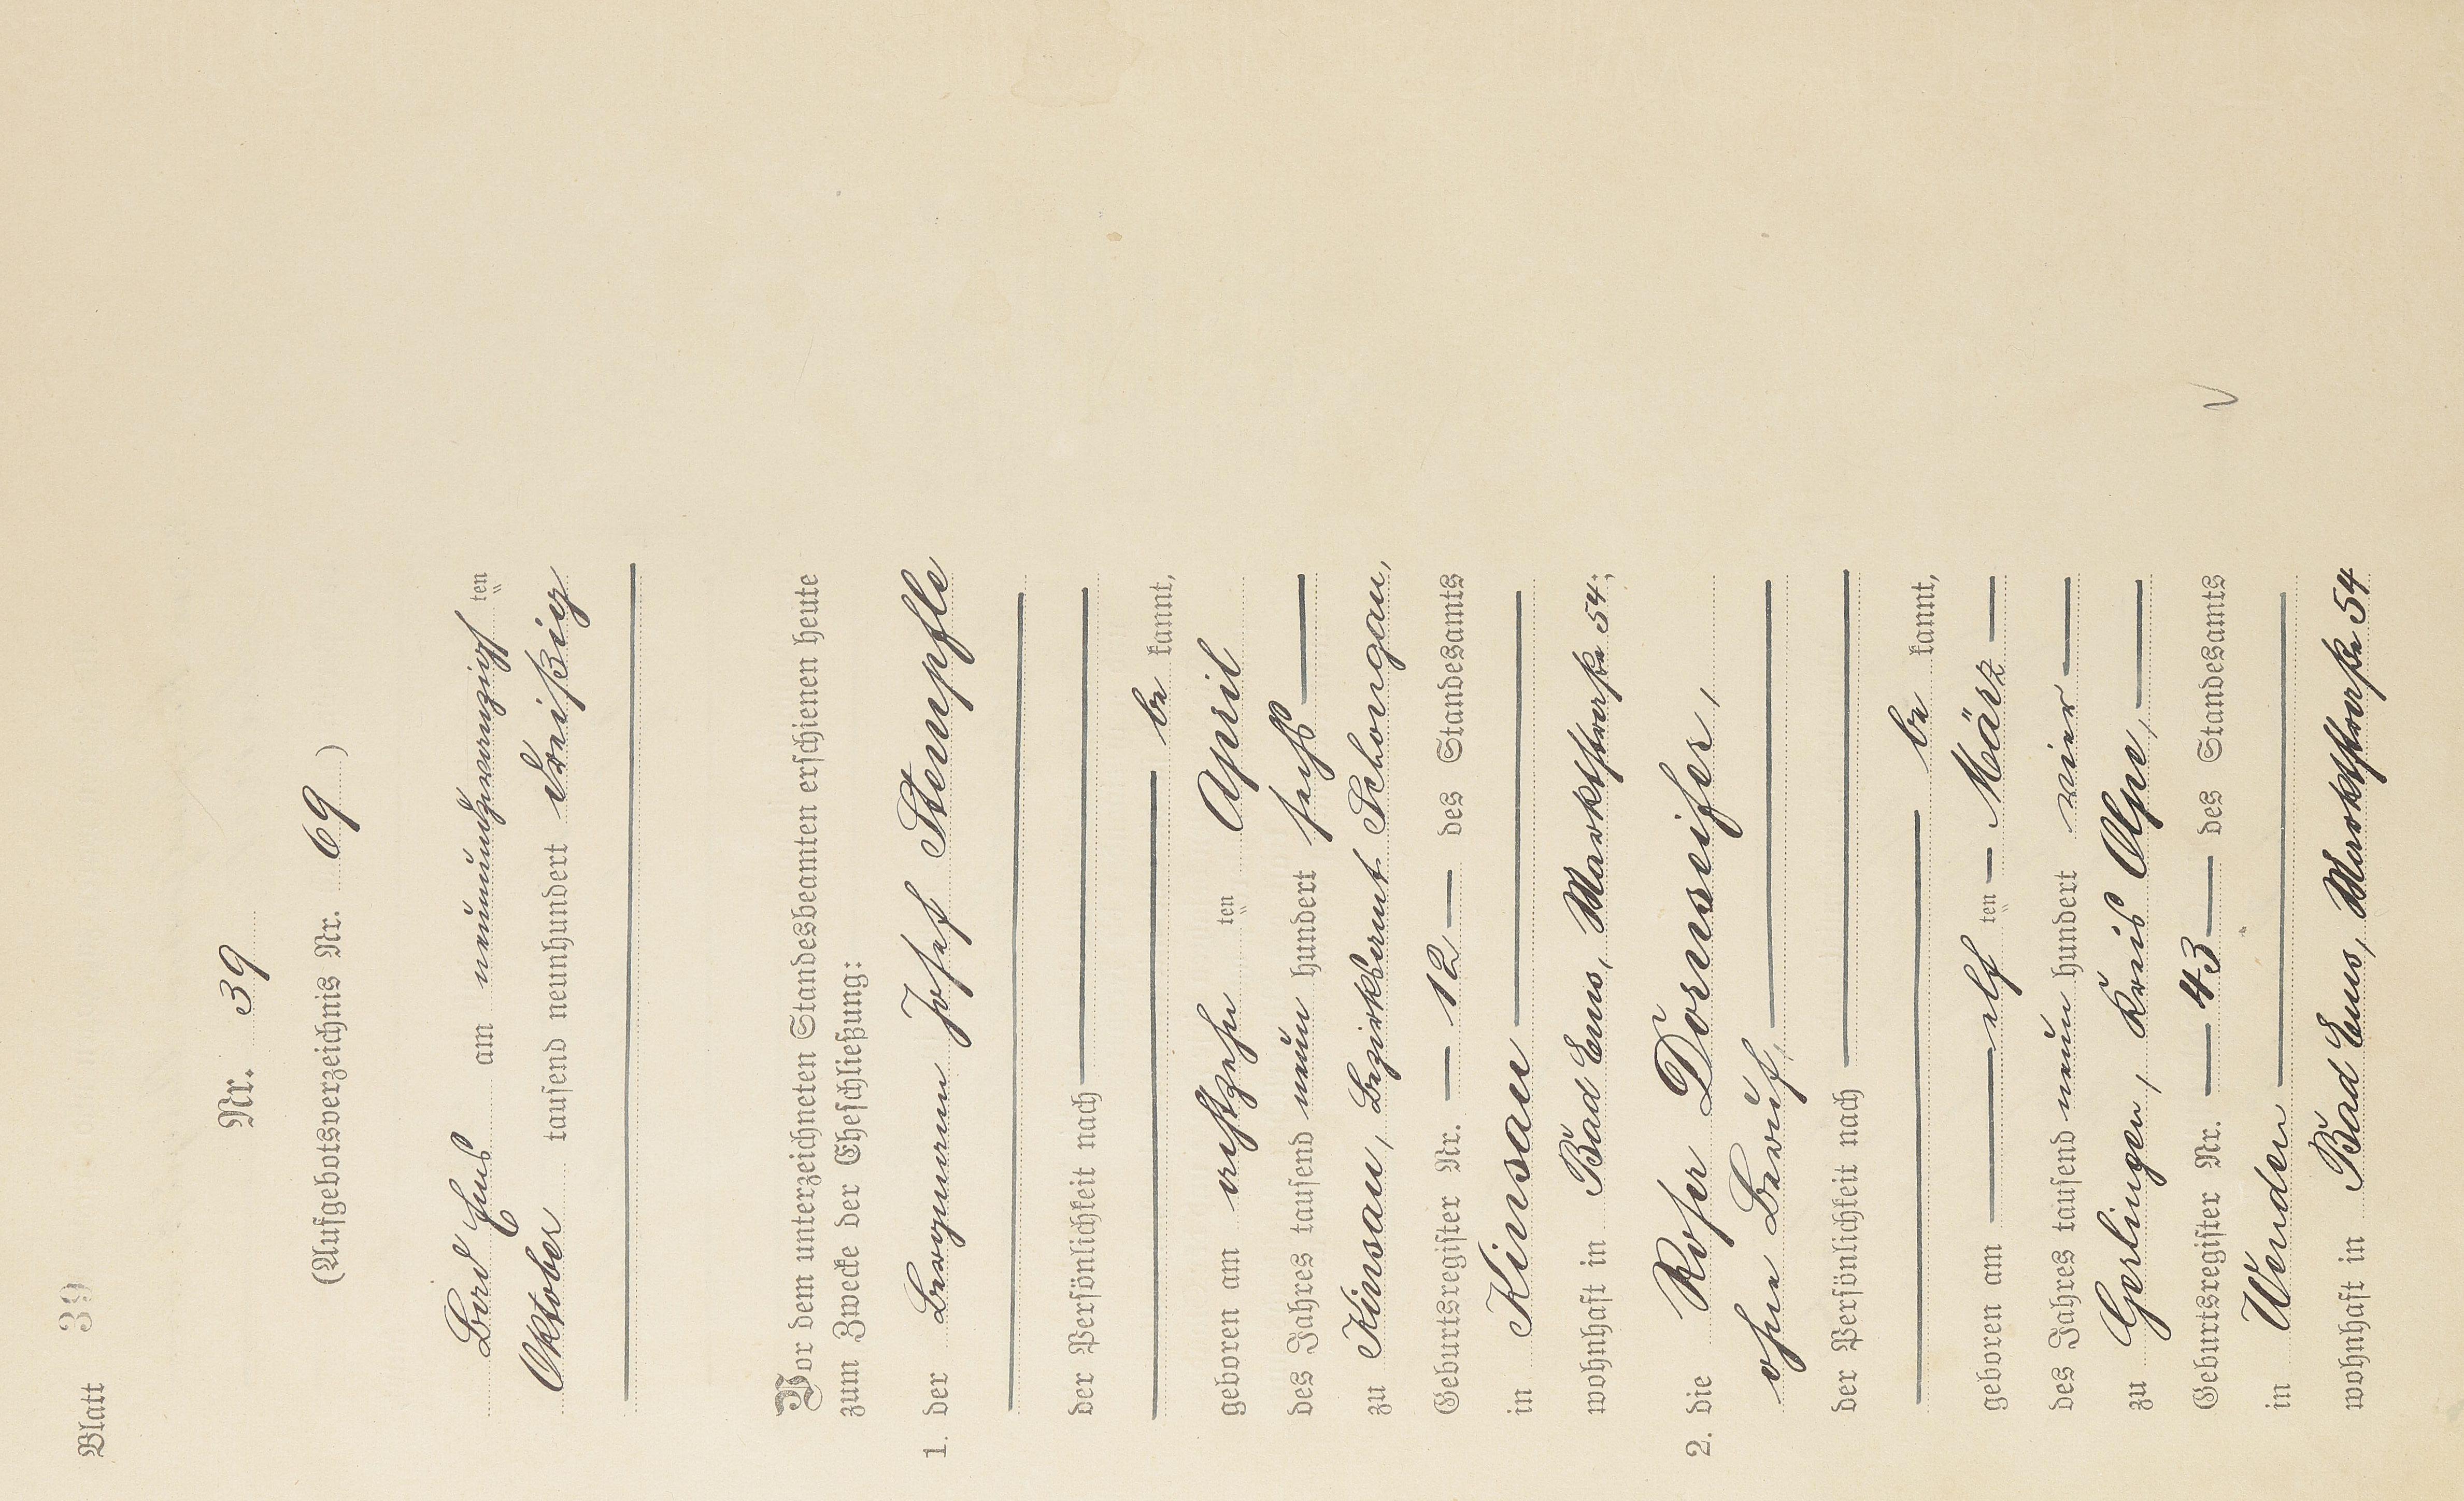 Blatt 39
Nr. 39
(Aufgebotsverzeichnis Nr. 69)
Bad Ems am neunundzwanzigsten
Oktober tausend neunhundert dreißig
Vor dem unterzeichneten Standesbeamten erschienen heute
zum Zwecke der Eheschließung:
1. der Bergmann Josef Stempfle
der Persönlichkeit nach
bekannt,
geboren am achtzehnten April
des Jahres tausend neunhundert sechs
zu Kinsau, Bezirksamt Schongau,
Geburtsregister Nr. 12 des Standesamts
in Kinsau
wohnhaft in Bad Ems, Marktstraße 54;
2. die Rosa Dornseifer,
ohne Beruf,
der Persönlichkeit nach
bekannt,
geboren am elften März
des Jahres tausend neunhundert vier
zu Gerlingen, Kreis Olpe,
Geburtsregister Nr. 43 des Standesamts
in Wenden
wohnhaft in Bad Ems, Marktstraße 54